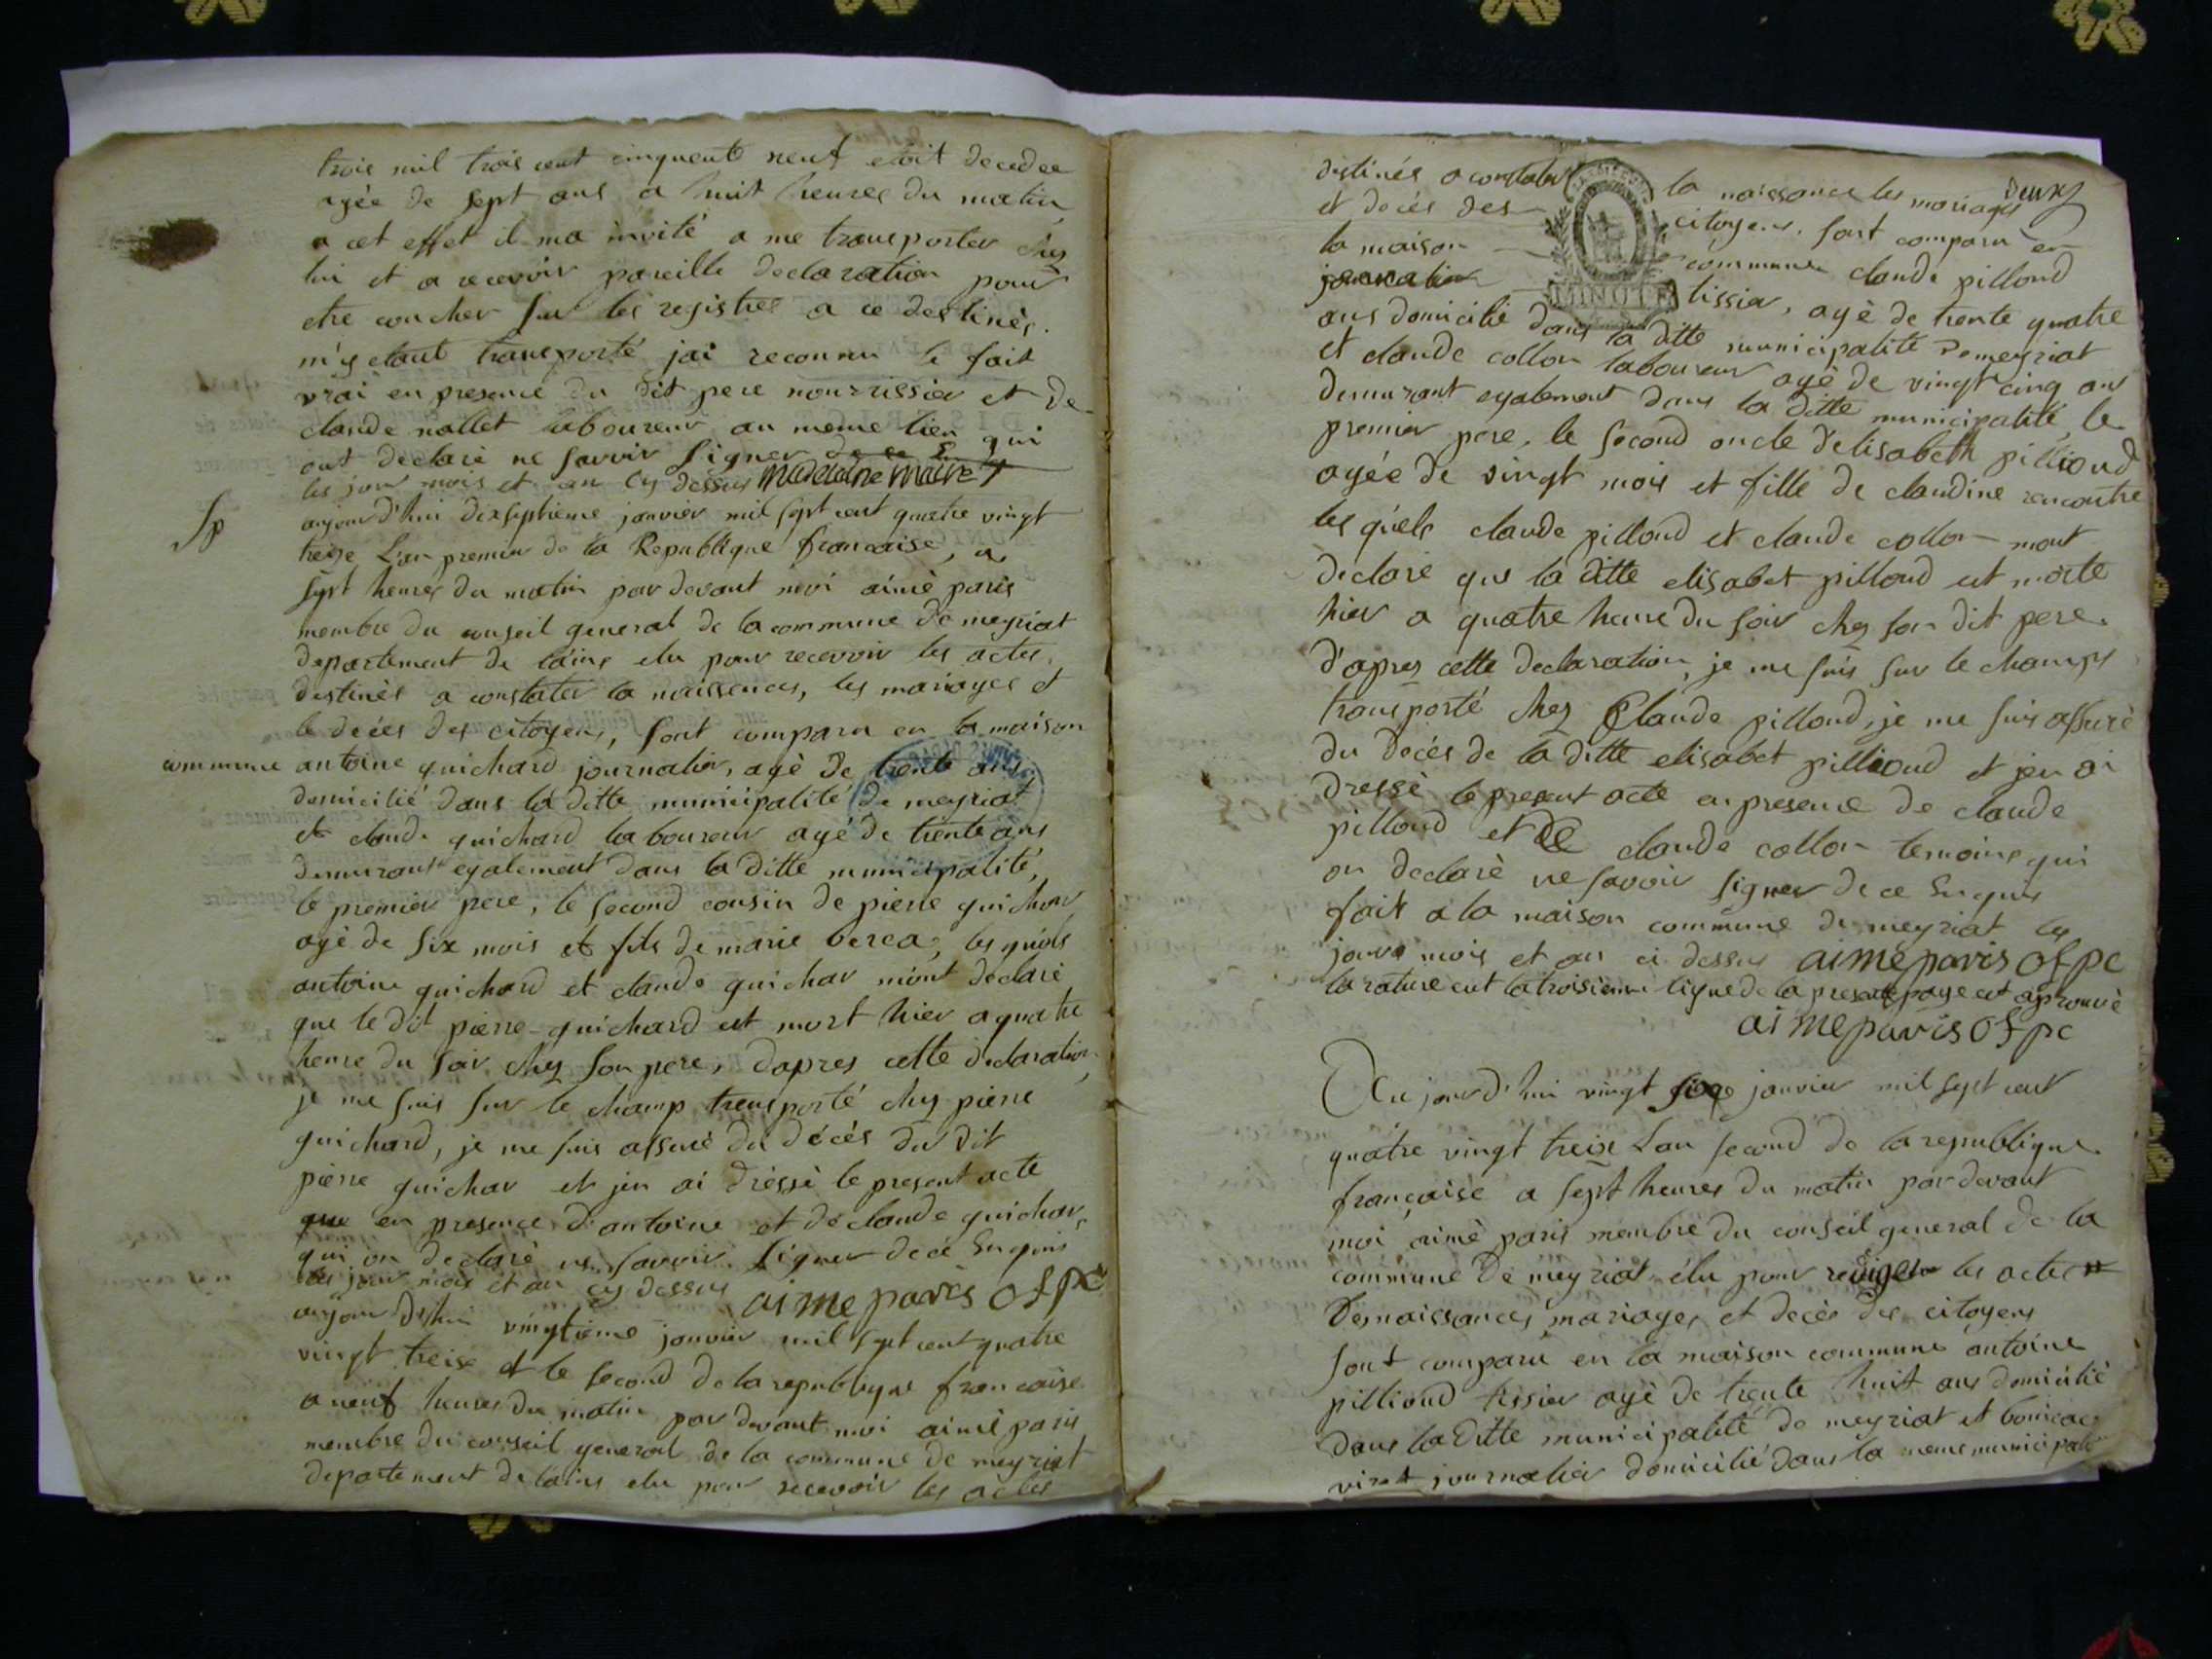 trois mil trois cent cinquente neuf etoit decedee
agée de sept ans a huit heures du matin
a cet effet il ma invité a me transporter chez
lui et a recevoir pareille declaration pour
etre coucher sur les registres a ce destinés.
m'y etant transporté jai reconnu le fait
vrai en presence du dit pere nourrissier et de
claude nallet laboureur au meme lieu qui
ont declaré ne savoir signer
les jour mois et an cy dessus Madelaine maire
aujourd'hui dixseptieme janvier mil sept cent quatre vingt
treize L'an premier de la Republique francaise, a
sept heures du matin par devant moi aimé paris
membre du conseil general de la commune de meyriat
departement de l'ains elu pour recevoir les actes
destinés a constater la naissences, les mariages et
le deces des citoyens, sont comparu en la maison
commune antoine guichard journalier, agé de trente ans
domicilié dans la ditte municipalité de meyriat
et claude guichard laboureur agé de trente ans
demeurant egalement dans la ditte municipalité,
le premier pere, le second cousin de pierre guichar
agé de six mois et fils de marie berca, les quels
antoine guichard et claude guichar m'ont declaré
que le dit pierre guichard est mort hier a quatre
heure du soir chez son pere, dapres cette declaration,
je me suis sur le champ transporté chez pierre
guichard, je me suis assuré du décés du dit
pierre guichar et jen ai dressé le present acte
que en presence d'antoine et de claude guichar,
qui on declaré ne savoir signer de ce enquis
les jour mois et an cy dessus aime paris ofpc
aujourdhui vingtieme janvier mil sept cent quatre
vingt treise et le second de la republique francaise
a neuf heures du matin par devant moi aimé paris
membre du conseil general de la commune de meyriat
departement de lains elu pour recevoir les actes
deux
destinés a constater la naissance les mariages
et decés des citoyens. sont comparu en
la maison commune claude pilloud
journalier tissier, agé de trente quatre
ans domicilié dans la ditte municipalité de meyriat
et claude collon laboureur agé de vingt cinq ans
demeurant egalement dans la ditte municipalité, le
premier pere, le second oncle d'elisabeth pillioud
agée de vingt mois et fille de claudine rencontre
les quels claude pilloud et claude collon mont
declaré que la ditte elisabet pilloud est morte
hier a quatre heure du soir chez son dit pere.
d'apres cette declaration, je me suis sur le champs
transporté chez Claude pilloud, je me suis assuré
du decés de la ditte elisabet pillioud et jen ai
dressé le present acte en presence de claude
pilloud et de claude collon temoins qui
on declaré ne savoir signer de ce enquis
fait a la maison commune de meyriat les
jours mois et an ci dessus aimé paris ofpc
la rature eut la troisieme ligne de la presente page est aprouvé
aime paris ofpc
Aujourd'hui vingt janvier mil sept cent
quatre vingt treize Lan second de la republique
françaisé a sept heures du matin par devant
moi aimé paris membre du conseil general de la
commune de meyriat élu pour rediger les actes
de naissances, mariages et decés des citoyens
sont comparu en la maison commune antoine
pillioud tissier agé de trente huit ans domicilié
dans la ditte municipalité de meyriat et
journalier domicilié dans la meme municipalité
MINUTE